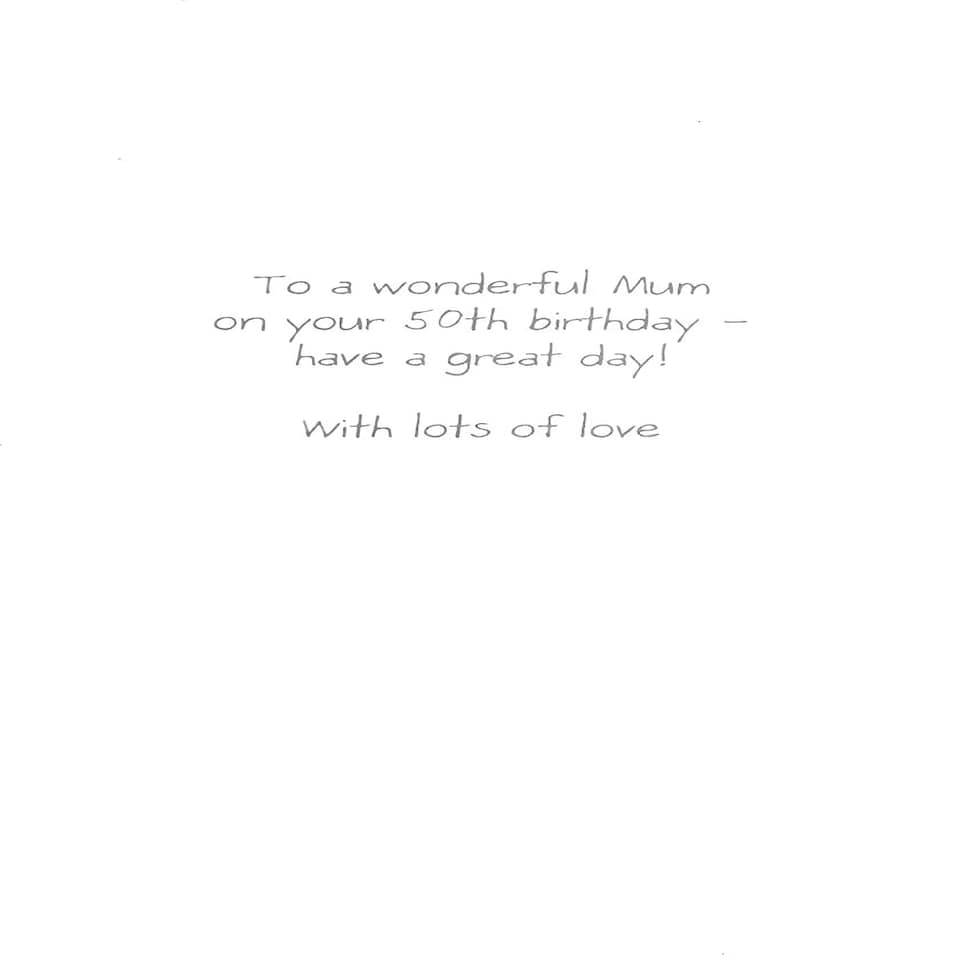 To a wonderful Mum
on your 50th birthday –
have a great day!
With lots of love